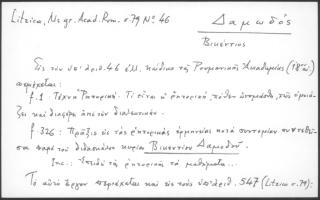 Litzica, Ms gr. Acad. Rom. σ.79 Nº 46
Δαμωδός
Βικέντιος
Εἰς τὸν ὑπ' ἀριθ. 46 ἑλλ. κώδικα τῆς Ρουμανικῆς Ἀκαδημίας (18ου αἰ.)
περιέχεται:
f.1. Τέχνη Ῥητορική. Τί εἶναι ἡ ῥητορική, πόθεν ὠνομάσθη, πῶς ὁρίζε-
ται καὶ διαφέρει ἀπὸ τὴν διαλεκτικήν.
f.326: Πράξις εἰς τὰς ῥητορικὰς ἑρμηνείας κατὰ συντομίαν συντεθεῖ-
σα παρὰ τοῦ διδασκάλου κυρίου Βικεντίου Δαμοδοῦ.
Inc.: Ἐπειδὴ τῆς ῥητορικῆς τὰ μαθήματα...
Τὸ αὐτὸ ἔργον περιέχεται καὶ εἰς τοὺς ὑπ' ἀριθ. 547 (Litzica σ.79):